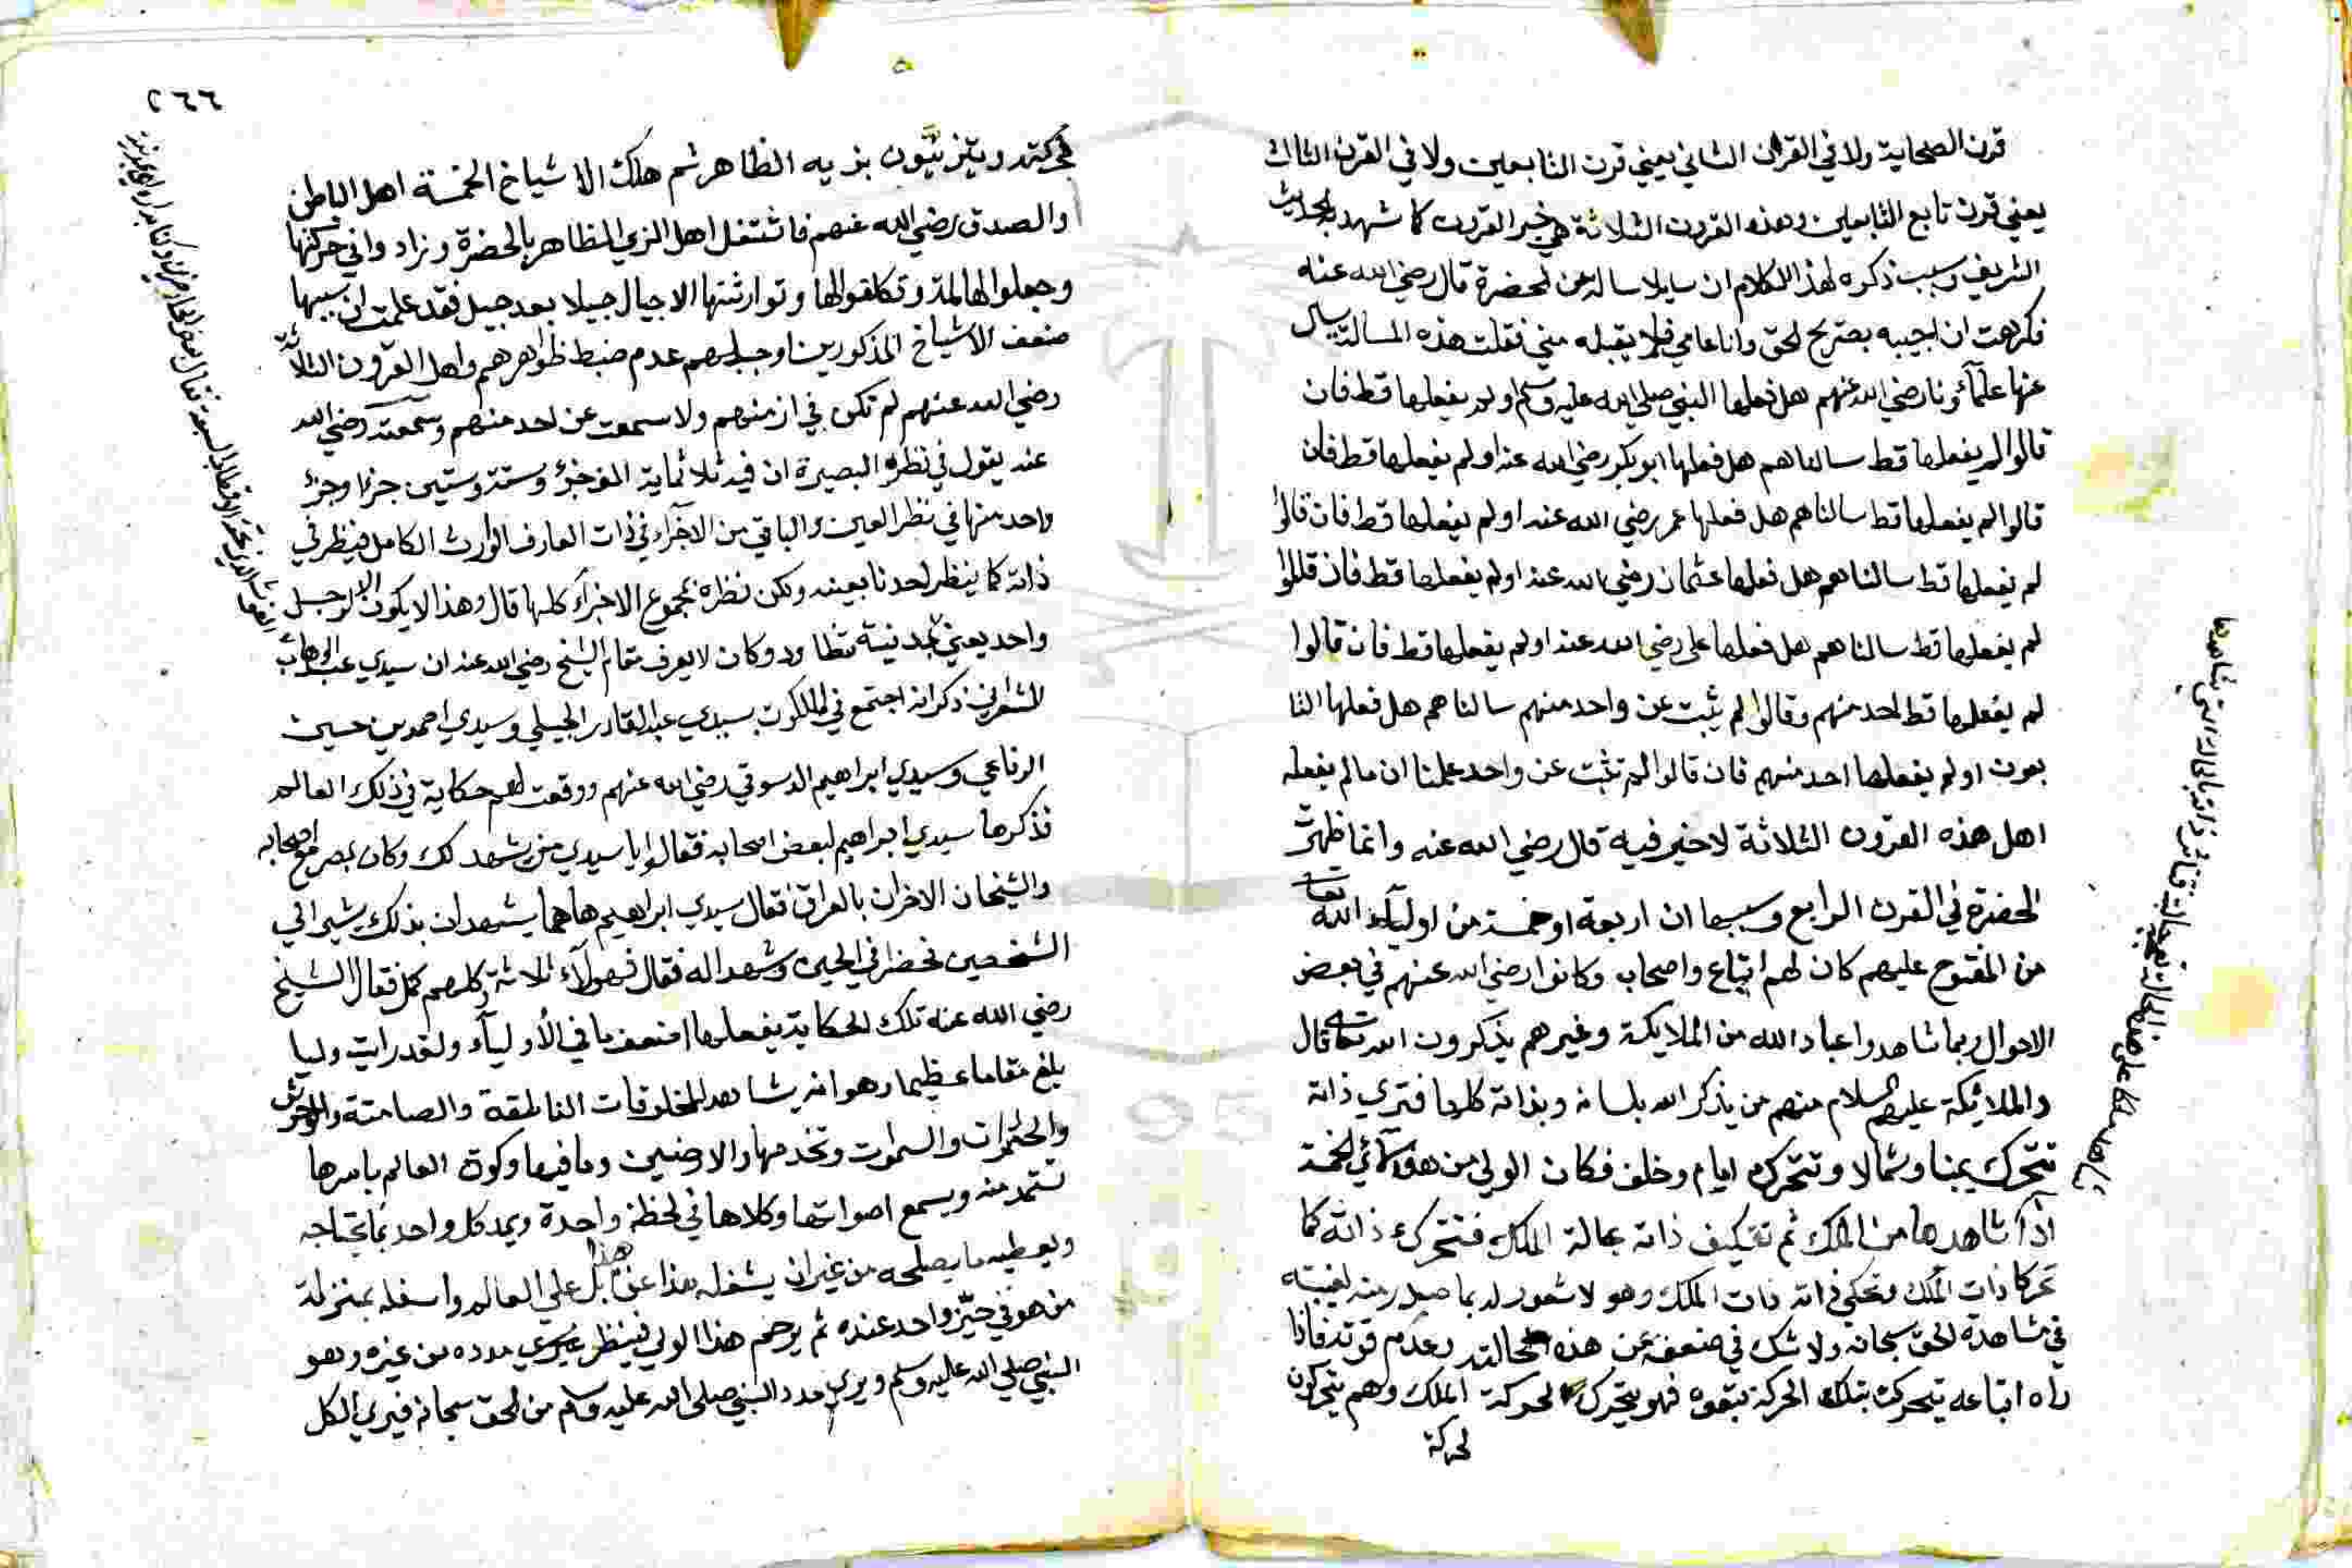 قرن الصحابة ولا في القرن الثاني يعني قرن التابعين ولا في القرن الثالث
يعني قرن تابع التابعين وهذه القرون الثلاثة هي خير القرون كما شهد به الحديث
الشريف وسبب ذكره لهذا الكلام ان سايلا ساله عن الحضرة قال رضي الله عنه
فكرهت ان اجيبه بصريح الحق وانا عامي فلا يقبله مني فقلت هذه المسالة يسال
عنها علمآؤنا رضي الله عنهم هل فعلها النبي صلى الله عليه وسلم او لم يفعلها قط فان
قالوا لم يفعلها قط سالناهم هل فعلها ابو بكر رضي الله عنه او لم يفعلها قط فان
قالوا لم يفعلها قط سالناهم هل فعلها عمر رضي الله عنه او لم يفعلها قط فان قالوا
لم يفعلها قط سالناهم هل فعلها عثمان رضي الله عنه او لم يفعلها قط فان قالوا
لم يفعلها قط سالناهم هل فعلها علي رضي الله عنه او لم يفعلها قط فان قالوا
لم يفعلها قط احد منهم وقالوا لم يثبت عن واحد منهم سالناهم هل فعلها التا
بعون او لم يفعلها احد منهم فان قالوا لم تثبت عن واحد علمنا ان ما لم يفعله
اهل هذه القرون الثلاثة لا خير فيه قال رضي الله عنه وانما ظهرت
الحضرة في القرن الرابع وسببها ان اربعة او خمسة من اوليآء الله تعالى
من المفتوح عليهم كان لهم اتباع واصحاب وكانوا رضي الله عنهم في بعض
الاحوال ربما شاهدوا عباد الله من الملايكة وغيرهم يذكرون الله تعالى قال
والملائكة عليهم السلام منهم من يذكر الله بلسانه وبذاته كلها فترى ذاته
تتحرك يمينا وشمالا وتتحرك امام وخلف فكان الولي من هؤلآئي الخمسة
اذا شاهد ملكا من الملك ثم تتكيف ذاته بحالة الملك فتتحرك ذاته كما
تحركا ذات الملك وتحكي ذاته ذات الملك وهو لا شعور له بما صدر منه لغيبته
في مشاهدة الحق سبحانه ولا شك في ضعفه عن هذه الحالته وعدم قوته فاذا
راه اتباعه يتحرك بتلك الحركة تبعوه فهو يتحرك لحركة الملك وهم يتحركون
لحركة
٢٦٦
لحركته ويتزيئون بزيه الظاهر ثم هلك الاشياخ الخمسة اهل الباطن
والصدق رضي الله عنهم فاشتغل اهل الزي الظاهر بالحضرة وزادوا في حركتها
وجعلوا لها الة وتكلفوا لها وتوارثتها الاجيال جيلا بعد جيل فقد علمت ان سببها
ضعف الاشياخ المذكورين اوجب لهم عدم ضبط ظواهرهم واهل القرون الثلاثة
رضي الله عنهم لم تكن في ازمنتهم ولا سمعت عن احد منهم وسمعته رضي الله
عنه يقول في نظرة البصيرة ان فيه ثلاثماية الف جزؤ وستة وستين جزءا وجزء
واحد منها في نظر العين والباقي من الاجزآء في ذات العارف الوارث الكامل فينظر في
ذاته كما ينظر احدنا بعينه ولكن نظره بمجموع الاجزآء كلها قال وهذا لا يكون الا لرجل
واحد يعني وكان لا يعرف مقام الشيخ رضي الله عنه ان سيدي عبد الوهاب
الشعراني ذكر انه اجتمع في الملكوت بسيدي عبد القادر الجيلي وسيدي احمد بن حسين
الرفاعي وسيدي ابراهيم الدسوقي رضي الله عنهم ووقعت لهم حكاية في ذلك العالم
فذكرها سيدي ابراهيم لبعض اصحابه فقالوا يا سيدي من يشهد لك وكان بمصر مع اصحابه
والشيخان الاخران بالعراق فقال سيدي ابراهيم هاهما يشهدان بذلك يشير الى
الشخصين فحضرا في الحين وشهدا له فقال فهولآء ثلاثة كلهم كمل فقال الشيخ
رضي الله عنه تلك الحكاية يفعلها اضعف ما في الأوليآء ولقد رايت وليا
بلغ مقاما عظيما وهو انه يشاهد المخلوقات الناطقة والصامتة والوحوش
والحشرات والسموات ونجومها والارضين وما فيها وكورة العالم باسرها
تستمد منه ويسمع اصواتها وكلامها في لحظة واحدة ويمد كل واحد بما يحتاجه
ويعطيه ما يصلحه من غير ان يشغله هذا عن هذا بل اعلي العالم واسفله بمنزلة
من هو في حيّز واحد عنده ثم يرحم هذا الولي فينظر فيرى مدده من غيره وهو
النبي صلى الله عليه وسلم ويرى مدد النبي صلى الله عليه وسلم من الحق سبحانه فيرى الكل